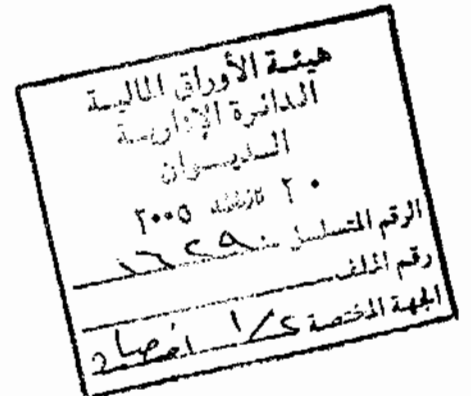 هيئة الأوراق المالية
الدائرة الإدارية
الديوان
٢٠ ٢٠٠٥
الرقم المتسلسل
رقم الملف
الجهة المختصة ١/٤